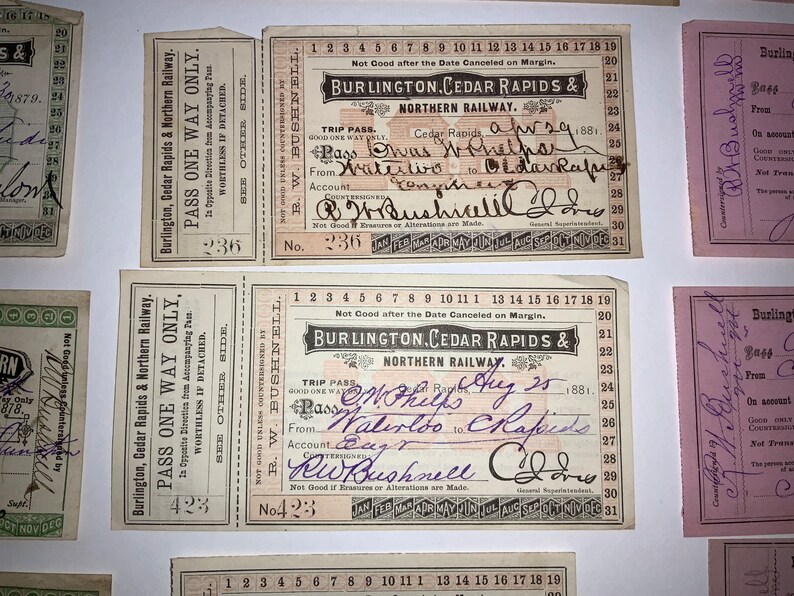 18 20
& 21
1879.
Manager.
OCT NOV DEC
Burlington, Cedar Rapids & Northern Railway.
PASS ONE WAY ONLY,
In Opposite Direction from Accompanying Pass.
WORTHLESS IF DETACHED.
SEE OTHER SIDE.
236
NOT GOOD UNLESS COUNTERSIGNED BY
R. W. BUSHNELL.
1 2 3 4 5 6 7 8 9 10 11 12 13 14 15 16 17 18 19
Not Good after the Date Canceled on Margin.
BURLINGTON, CEDAR RAPIDS &
NORTHERN RAILWAY.
TRIP PASS.
GOOD ONE WAY ONLY.
Cedar Rapids, Apr 29 1881.
Pass Chas W Phelps
From Waterloo to Cedar Rapids
Account Engineer
COUNTERSIGNED:
R W Bushnell C J Ives
Not Good if Erasures or Alterations are Made. General Superintendent.
No. 236 JAN FEB MAR APR MAY JUN JUL AUG SEP OCT NOV DEC
20
21
22
23
24
25
26
27
28
29
30
31
Burlington, Cedar Rapids & Northern Railway.
PASS ONE WAY ONLY,
In Opposite Direction from Accompanying Pass.
WORTHLESS IF DETACHED.
SEE OTHER SIDE.
423
NOT GOOD UNLESS COUNTERSIGNED BY
R. W. BUSHNELL.
1 2 3 4 5 6 7 8 9 10 11 13 14 15 16 17 18 19
Not Good after the Date Canceled on Margin.
BURLINGTON, CEDAR RAPIDS &
NORTHERN RAILWAY.
TRIP PASS.
GOOD ONE WAY ONLY.
Cedar Rapids, Aug 25 1881.
Pass C W Phelps
From Waterloo to C Rapids
Account Engr
COUNTERSIGNED:
R W Bushnell C J Ives
Not Good if Erasures or Alterations are Made. General Superintendent.
No 423 JAN FEB MAR APR MAY JUN JUL AUG SEP OCT NOV DEC
20
21
22
23
24
25
26
27
28
29
30
31
4 3 2 1
Not Good unless Countersigned by
1878.
Supt.
OCT NOV DEC
Burlin
Pass
From
On account
GOOD ONLY
COUNTERSIGN
Not Trans
The person acce
Countersigned by
R W Bushnell
Burling
Pass
From
On account
GOOD ONLY
COUNTERSIGN
Not Tran
The person acc
Countersigned by
R W Bushnell
1 2 3 4 5 6 7 8 9 10 11 1 13 14 15 16 17 18 19